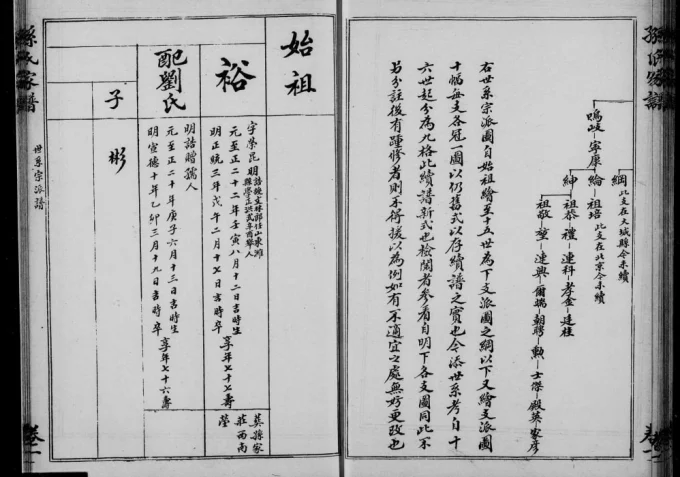 孫氏家譜
卷一
綱 此支在大城縣今未續
鳴岐 寧康 綸 祖培 此支在北京今未續
紳 祖恭 禮 連科 孝金 廷桂
祖敬 堃 連興 爾瑞 朝聘 勲 士傑 殿英 家彦
右世系宗派圖自始祖繪至十五世為下支派圖之綱以下又繪支派圖
十幅每支各冠一圖以仍舊式以存續譜之實也今添世系考自十
六世起分為九格此續譜新式也檢閱者參看自明下各支圖同此不
另分註後有踵修者則不得援以為例如有不適宜之處無妨更改也
始祖
裕
字榮昆 明誥贈文林郎任山東濰
縣學正洪武辛酉舉人
元至正二十二年壬寅八月十二日吉時生
明正統三年戊午二月十七日吉時卒
享年七十七壽
葬孫家
莊西南
塋
配劉氏
明誥贈孺人
元至正二十年庚子六月十三日吉時生
明宣德十年乙卯三月十九日吉時卒
享年七十六壽
子
彬
孫氏家譜
世系宗派譜
卷一